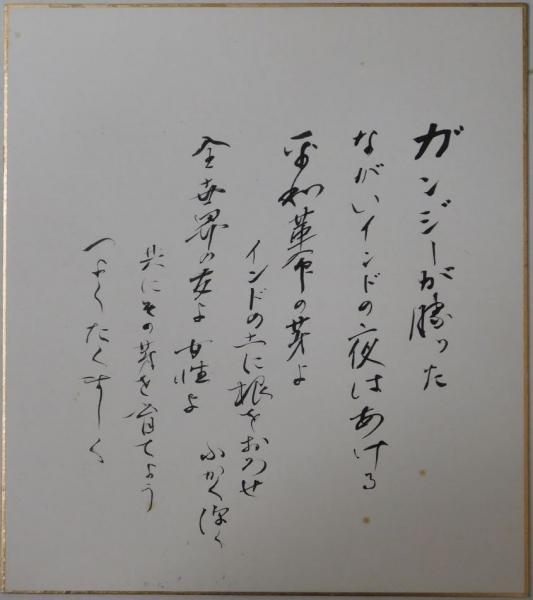 ガンジーが勝った
ながいインドの夜はあける
平和革命の芽よ
インドの土に根をおろせ
ふかく深く
全世界の友よ女性よ
共にその芽を育てよう
つよくたくましく